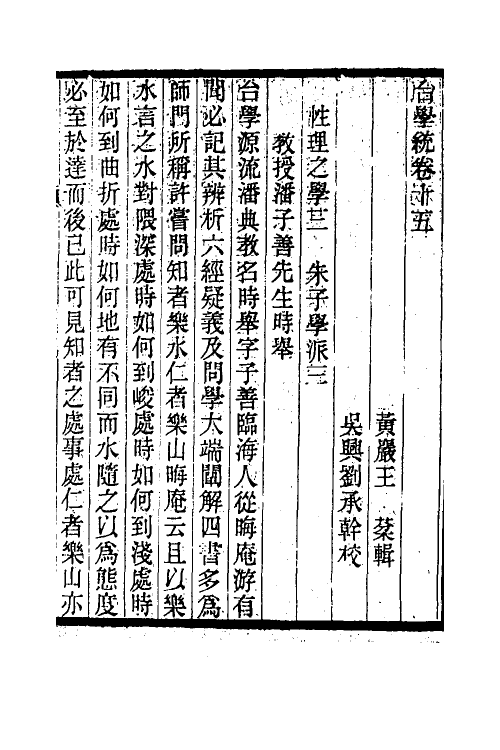 台學統卷十五
黃巖王棻輯
吳興劉承幹校
性理之學三 朱子學派三
教授潘子善先生時舉
台學源流潘典教名時舉字子善臨海人從晦庵游有
聞必記其辨析六經疑義及問學大端闡解四書多爲
師門所稱許嘗問知者樂水仁者樂山晦庵云且以樂
水言之水對隈深處時如何到峻處時如何到淺處時
如何到曲折處時如何地有不同而水隨之以爲態度
必至於達而後已此可見知者之處事處仁者樂山亦